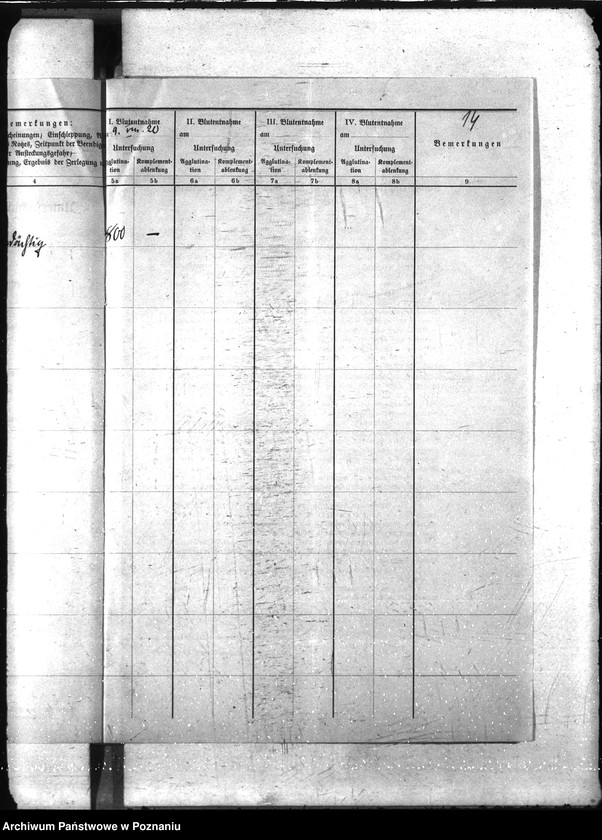 14
emerkungen:
cheinungen, Einschleppung,
Rotzes, Zeitpunkt der Beendig
r Ansteckungsgefahr,
ung, Ergebnis der Zerlegung
I. Blutentnahme
9. VIII. 20
Untersuchung
gglutina-
tion
Komplement-
ablenkung
II. Blutentnahme
am
Untersuchung
Agglutina-
tion
Komplement-
ablenkung
III. Blutentnahme
am
Untersuchung
Agglutina-
tion
Komplement-
ablenkung
IV. Blutentnahme
am
Untersuchung
Agglutina-
tion
Komplement-
ablenkung
Bemerkungen
4 5a 5b 6a 6b 7a 7b 8a 8b 9
dächtig 800 —
Archiwum Państwowe w Poznaniu